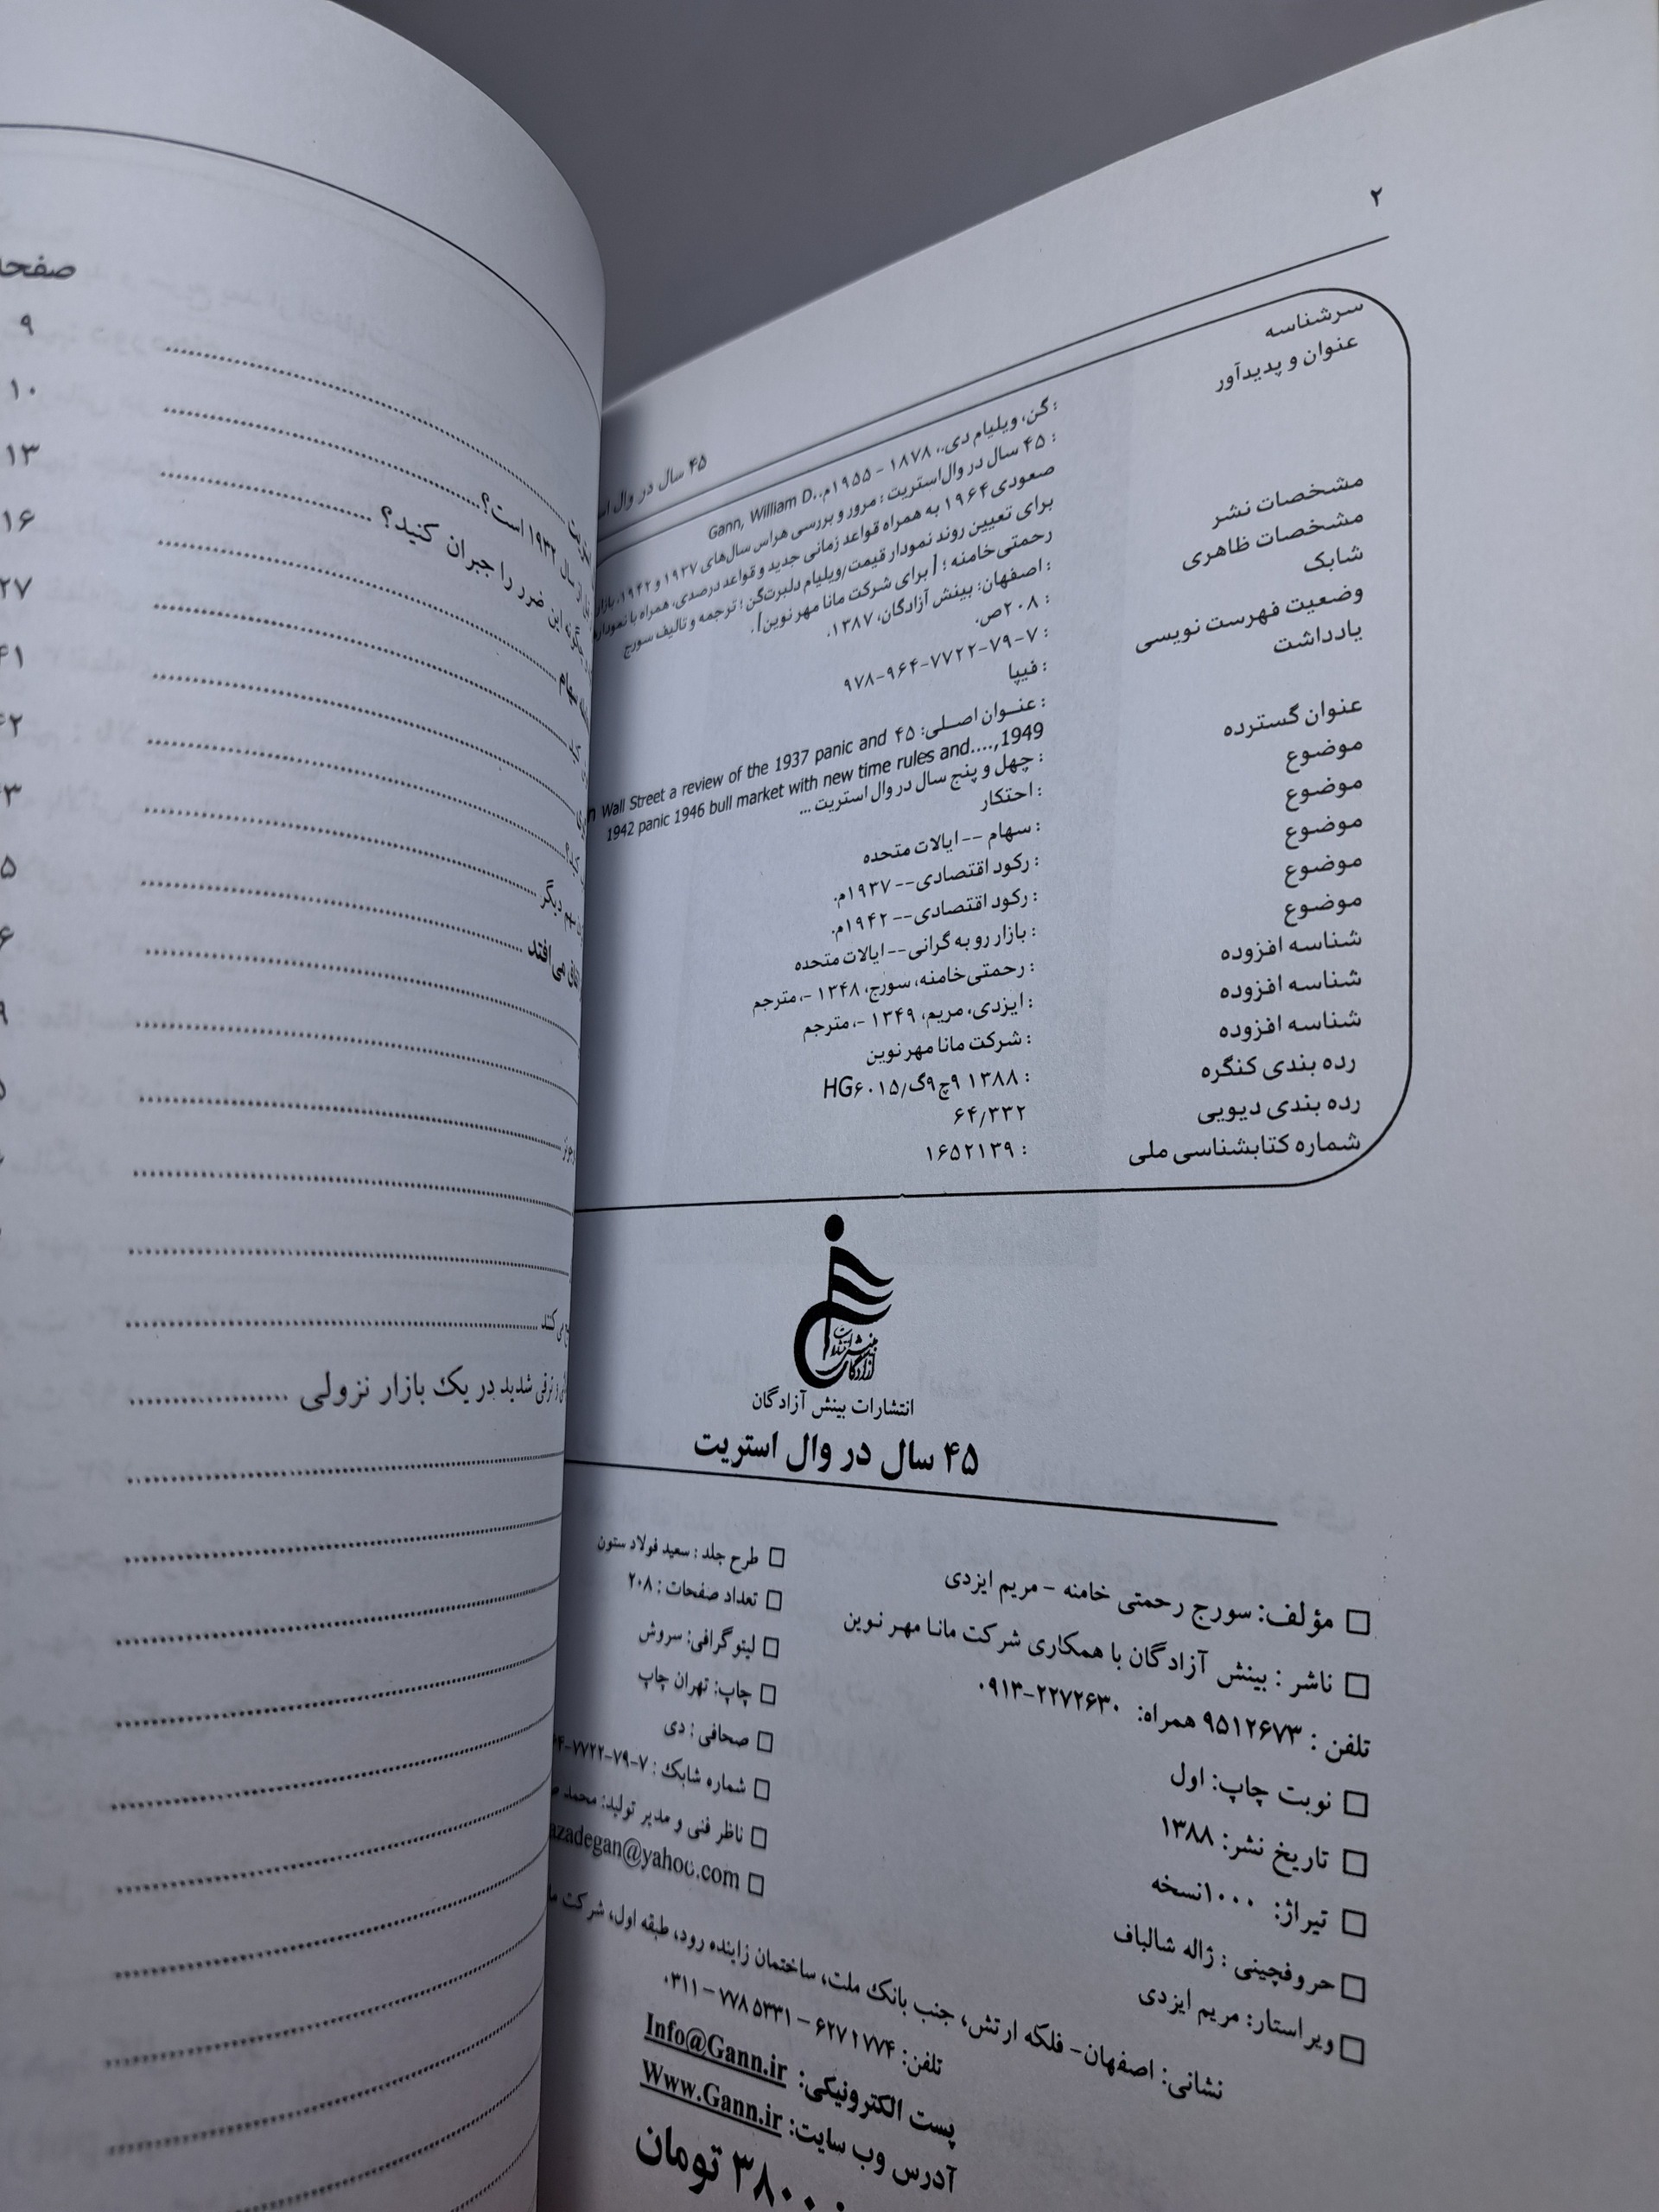 ۲
۴۵ سال در وال
سرشناسه : گن، ویلیام دی.، ۱۸۷۸ - ۱۹۵۵م.، Gann, William D.
عنوان و پدیدآور : ۴۵ سال در وال‌استریت : مرور و بررسی هراس سال‌های ۱۹۳۷ و ۱۹۴۲، بازار
صعودی ۱۹۶۴ به همراه قواعد زمانی جدید و قواعد درصدی، همراه با نمودار
برای تعیین روند نمودار قیمت/ویلیام دلبرت‌گن ؛ ترجمه و تالیف سورج
رحمتی‌خامنه ؛ [ برای شرکت مانا مهر نوین].
مشخصات نشر : اصفهان: بینش آزادگان، ۱۳۸۷.
مشخصات ظاهری : ۲۰۸ص.
شابک : ۹۷۸-۹۶۴-۷۷۲۲-۷۹-۷
وضعیت فهرست نویسی : فیپا
یادداشت : عنوان اصلی: ۴۵ Wall Street a review of the 1937 panic and
1942 panic 1946 bull market with new time rules and....,1949
عنوان گسترده : چهل و پنج سال در وال استریت ...
موضوع : احتکار
موضوع : سهام -- ایالات متحده
موضوع : رکود اقتصادی-- ۱۹۳۷م.
موضوع : رکود اقتصادی-- ۱۹۴۲م.
موضوع : بازار رو به گرانی-- ایالات متحده
شناسه افزوده : رحمتی‌خامنه، سورج، ۱۳۴۸ -، مترجم
شناسه افزوده : ایزدی، مریم، ۱۳۴۹ -، مترجم
شناسه افزوده : شرکت مانا مهر نوین
رده بندی کنگره : ۱۳۸۸ ۹چ۹گ/HG۶۰۱۵
رده بندی دیویی ۶۴/۳۳۲
شماره کتابشناسی ملی : ۱۶۵۲۱۳۹
انتشارات بینش آزادگان
انتشارات بینش آزادگان
۴۵ سال در وال استریت
□ مؤلف: سورج رحمتی خامنه - مریم ایزدی
□ ناشر : بینش آزادگان با همکاری شرکت مانا مهر نوین
تلفن : ۹۵۱۲۶۷۳ همراه: ۰۹۱۳-۲۲۷۲۶۳۰
□ نوبت چاپ: اول
□ تاریخ نشر: ۱۳۸۸
□ تیراژ: ۱۰۰۰نسخه
□ حروفچینی : ژاله شالباف
□ ویراستار: مریم ایزدی
□ طرح جلد : سعید فولاد ستون
□ تعداد صفحات : ۲۰۸
□ لیتوگرافی: سروش
□ چاپ: تهران چاپ
□ صحافی : دی
□ شماره شابک : ۷-۷۹-۷۷۲۲-
□ ناظر فنی و مدیر تولید: محمد
□ azadegan@yahoo.com
نشانی: اصفهان- فلکه ارتش، جنب بانک ملت، ساختمان زاینده رود، طبقه اول، شرکت
تلفن: ۶۲۷۱۷۷۴ – ۷۷۸۵۳۳۱ – ۰۳۱۱
پست الکترونیکی: Info@Gann.ir
آدرس وب سایت: Www.Gann.ir
۳۸۰۰۰ تومان
صفحه
۹
۱۰
از سال ۱۹۳۲ است؟ ۱۳
چگونه این ضرر را جبران کنید؟ ۱۶
سهام ۲۷
۴۱
سهم دیگر
می‌افتد
می‌کنند
ترقی شدید در یک بازار نزولی